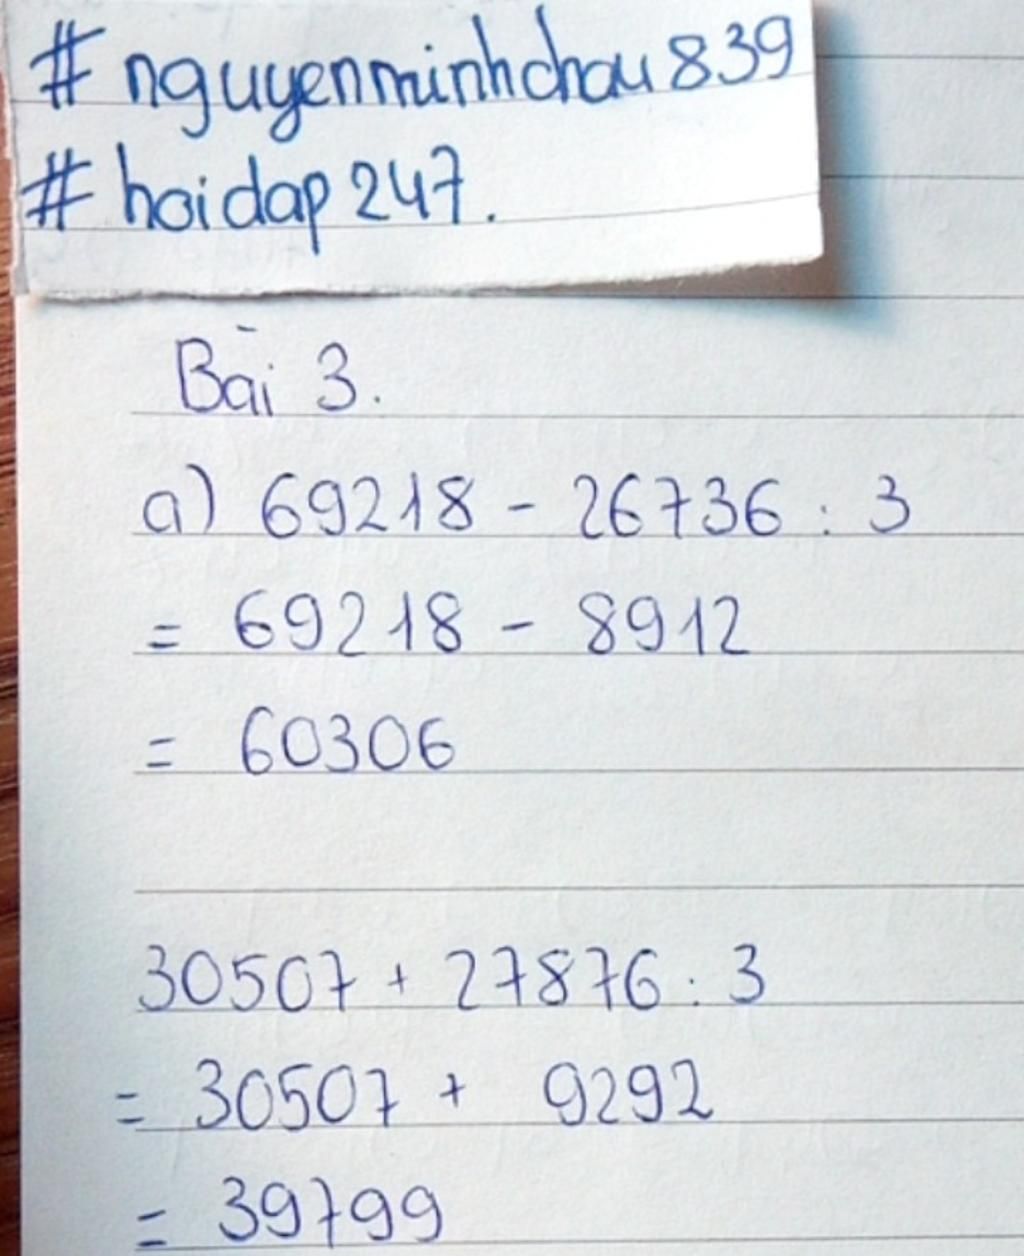 # nguyenminhchau839
# hoidap247.
Bài 3.
a) 69218 - 26736 : 3
= 69218 - 8912
= 60306
30507 + 27876 : 3
= 30507 + 9292
= 39799